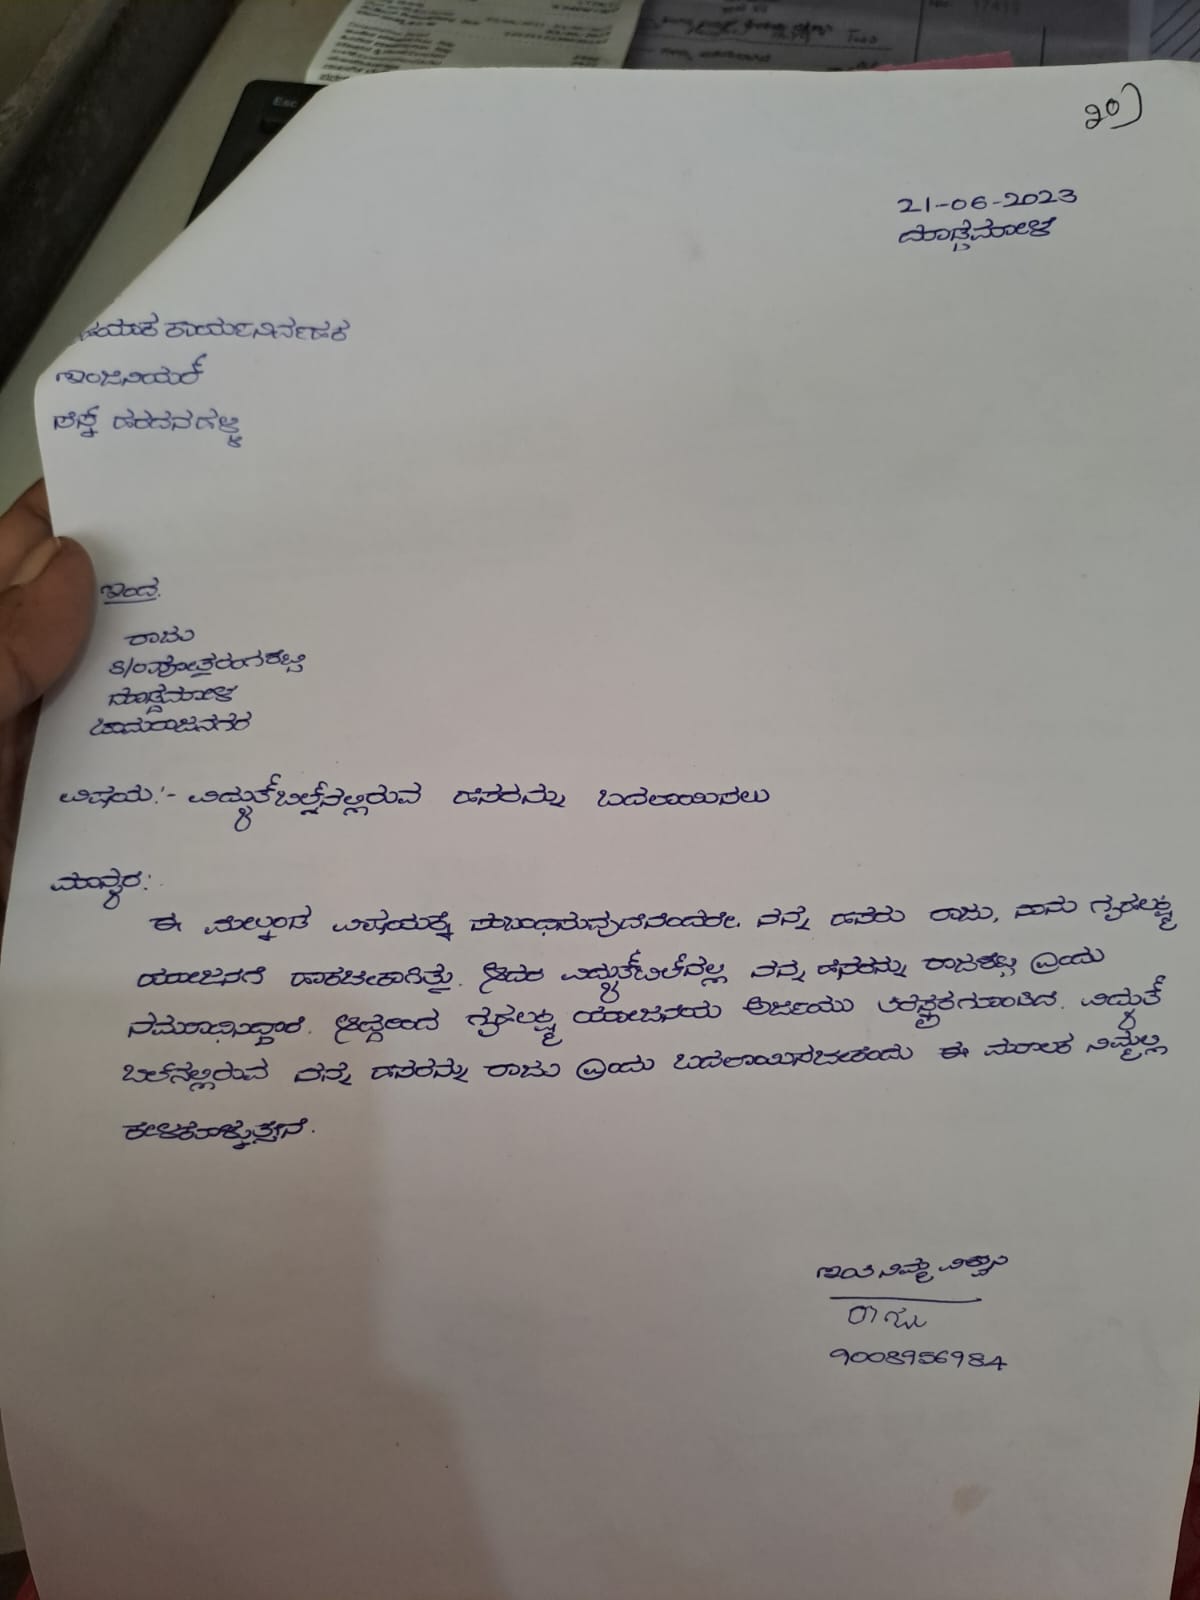 ೨೦)
21-06-2023
ದೊಡ್ಡಮೋಳೆ
ಹಾಯಕ ಕಾರ್ಯನಿರ್ವಾಹಕ
ಇಂಜಿನಿಯರ್
ಸೆಸ್ಕ್ ಹರದನಹಳ್ಳಿ
ಇಂದ.
ರಾಜು
S/o
ದೊಡ್ಡಮೋಳೆ
ಚಾಮರಾಜನಗರ
ವಿಷಯ:- ವಿದ್ಯುತ್ ಬಿಲ್ನಲ್ಲಿರುವ ಹೆಸರನ್ನು ಬದಲಾಯಿಸಲು
ಮಾನ್ಯರೆ:
ಈ ಮೇಲ್ಕಂಡ ವಿಷಯಕ್ಕೆ ನನ್ನ ಹೆಸರು ರಾಜು, ನಾನು ಗೃಹಲಕ್ಷ್ಮಿ
ಯೋಜನೆಗೆ ಹಾಕಬೇಕಾಗಿತ್ತು. ಆದರೆ ವಿದ್ಯುತ್ ಬಿಲ್‌ನಲ್ಲಿ ನನ್ನ ಹೆಸರನ್ನು ರಾಜಶೆಟ್ಟಿ ಎಂದು
ನಮೂದಿಸಿದ್ದಾರೆ. ಆದ್ದರಿಂದ ಗೃಹಲಕ್ಷ್ಮಿ ಯೋಜನೆಯ ಅರ್ಜಿಯು ತಿರಸ್ಕೃತಗೊಂಡಿದೆ. ವಿದ್ಯುತ್
ಬಿಲ್‌ನಲ್ಲಿರುವ ನನ್ನ ಹೆಸರನ್ನು ರಾಜು ಎಂದು ಬದಲಾಯಿಸಬೇಕೆಂದು ಈ ಮೂಲಕ ನಿಮ್ಮಲ್ಲಿ
ಕೇಳಿಕೊಳ್ಳುತ್ತೇನೆ.
ಇಂತಿ ನಿಮ್ಮ ವಿಶ್ವಾಸಿ
ರಾಜು
9008956984